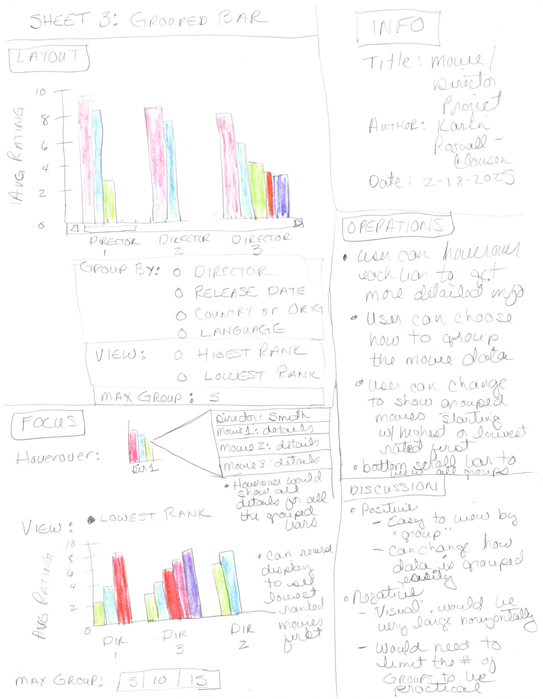 SHEET 3: GROUPED BAR
LAYOUT
AVG RATING
10
8
6
4
2
0
DIRECTOR 1
DIRECTOR 2
DIRECTOR 3
GROUP BY: O DIRECTOR
O RELEASE DATE
O COUNTRY OF ORIG
O LANGUAGE
VIEW: O HIGEST RANK
O LOWEST RANK
MAX GROUP: 5
FOCUS
Hoverover:
DIR 1
Director: Smith
Movie 1: details
Movie 2: details
Movie 3: details
• Hoverover would
show all
details for all
the grouped
bars
VIEW: • LOWEST RANK
AVG RATING
10
8
6
4
2
0
DIR 1
DIR 3
DIR 2
• Can reverse
display
to see
lowest
ranked
movies
first
MAX GROUP: 5 10 15
INFO
Title: Movie/
Director
Project
AUTHOR: Karin
Clausen
Date: 2-18-2025
OPERATIONS
• user can hoverover
each bar to get
more detailed info
• User can choose
how to group
the movie data
• User can change
to show grouped
movies starting
w/highest or lowest
rated first
• bottom scroll bar to
view all groups
DISCUSSION
• Positive
- Easy to view by
"group"
- Can change how
data is grouped
easily
• Negative:
- Visual would be
very large horizontally
- Would need to
limit the # of
GROUPS to be
practical